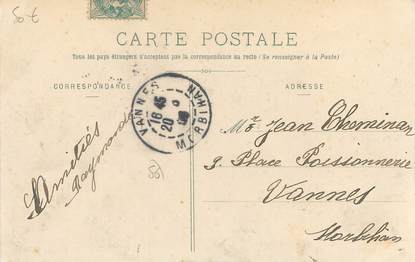 50 €
CARTE POSTALE
Tous les pays étrangers n'acceptent pas la correspondance au recto (Se renseigner à la Poste)
CORRESPONDANCE
ADRESSE
VANNES
16 45
20
MORBIHAN
Amitiés
Raymonde
Mr Jean Theminan
9. Place Poissonnerie
Vannes
Morbihan